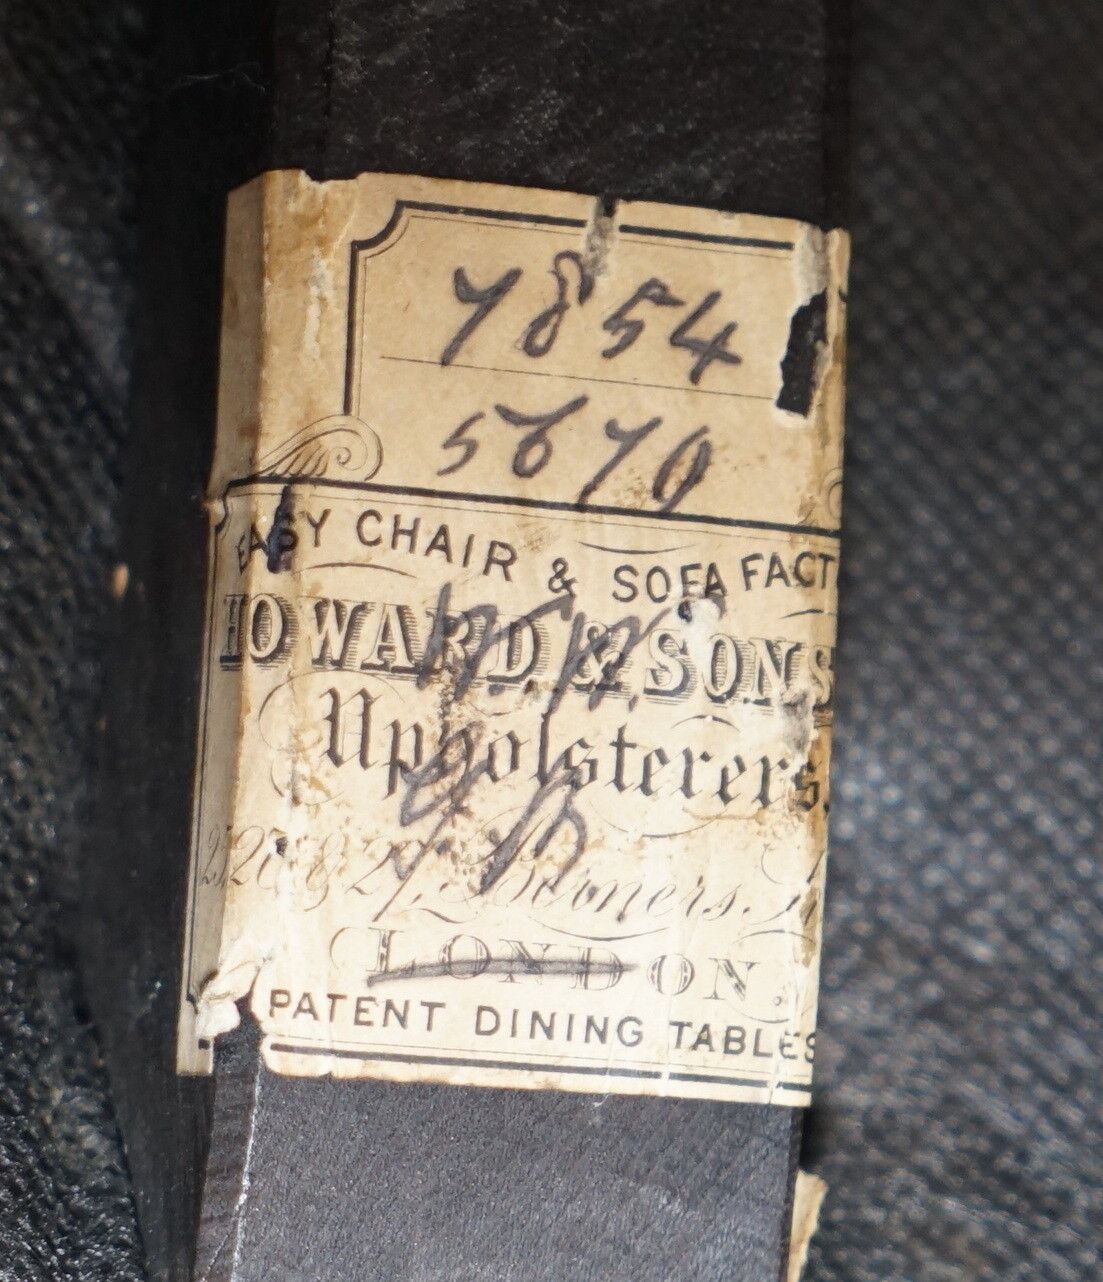 7854
5670
EASY CHAIR & SOFA FACT
HOWARD & SONS
Upholsterers.
& 27, Berners
LONDON.
PATENT DINING TABLES